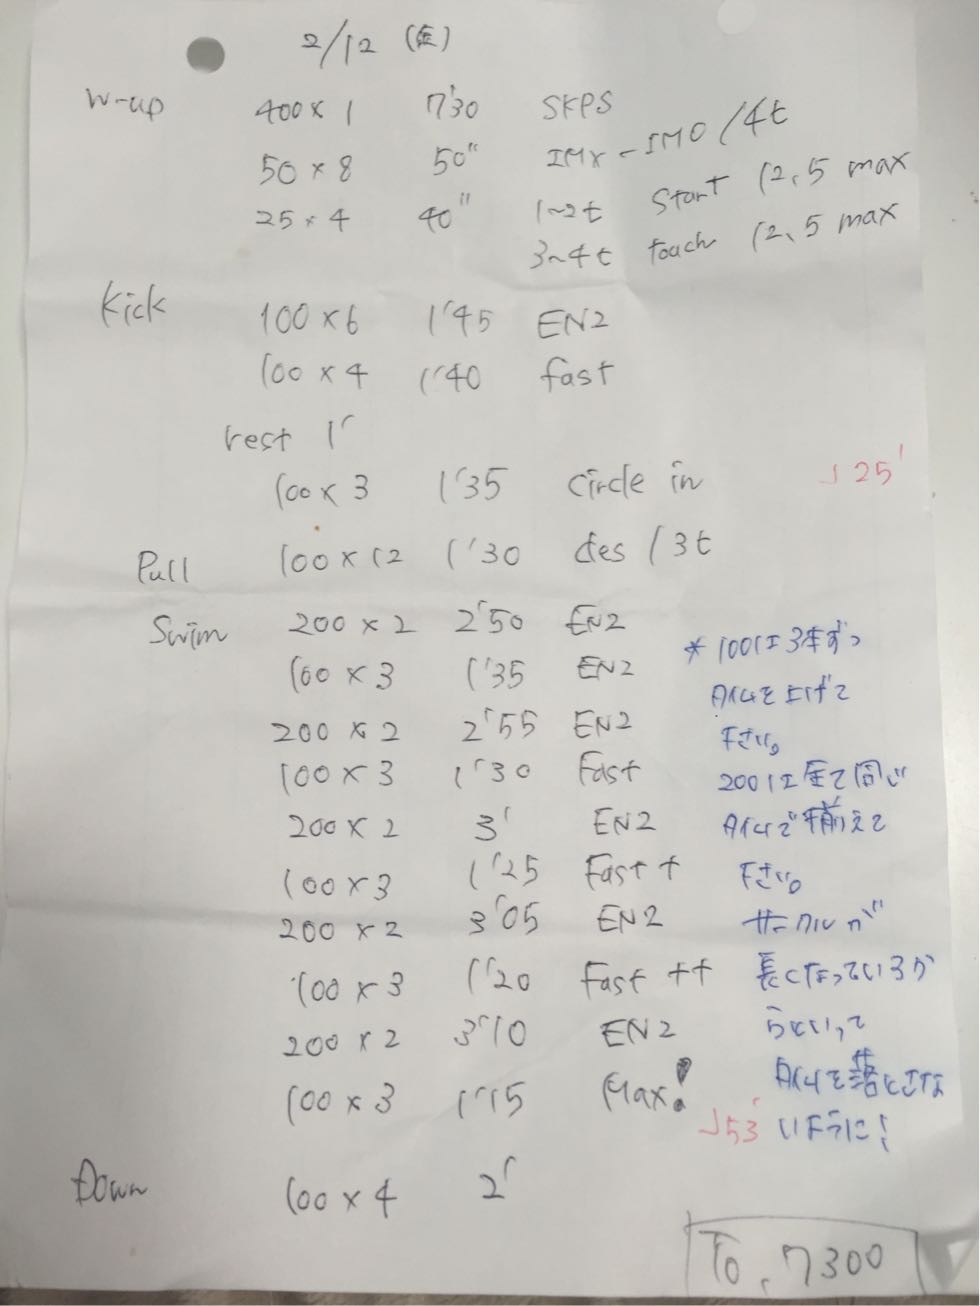 2/12 (金)
W-up 400×1 7'30 SKPS
50×8 50" IMX-IMO/4t
25×4 40" 1~2t Start 12.5 max
3~4t touch 12.5 max
Kick 100×6 1'45 EN2
100×4 1'40 fast
rest 1'
100×3 1'35 circle in 」25'
Pull 100×12 1'30 des/3t
Swim 200×2 2'50 EN2
100×3 1'35 EN2
200×2 2'55 EN2
100×3 1'30 Fast
200×2 3' EN2
100×3 1'25 Fast+
200×2 3'05 EN2
100×3 1'20 Fast++
200×2 3'10 EN2
100×3 1'15 Max!
*100は3本ずつ
タイムを上げて
下さい。
200は全て同じ
タイムで揃えて
下さい。
サークルが
長くなっているか
らといって
タイムを落とさな
」53' いように!
Down 100×4 2'
To. 7300